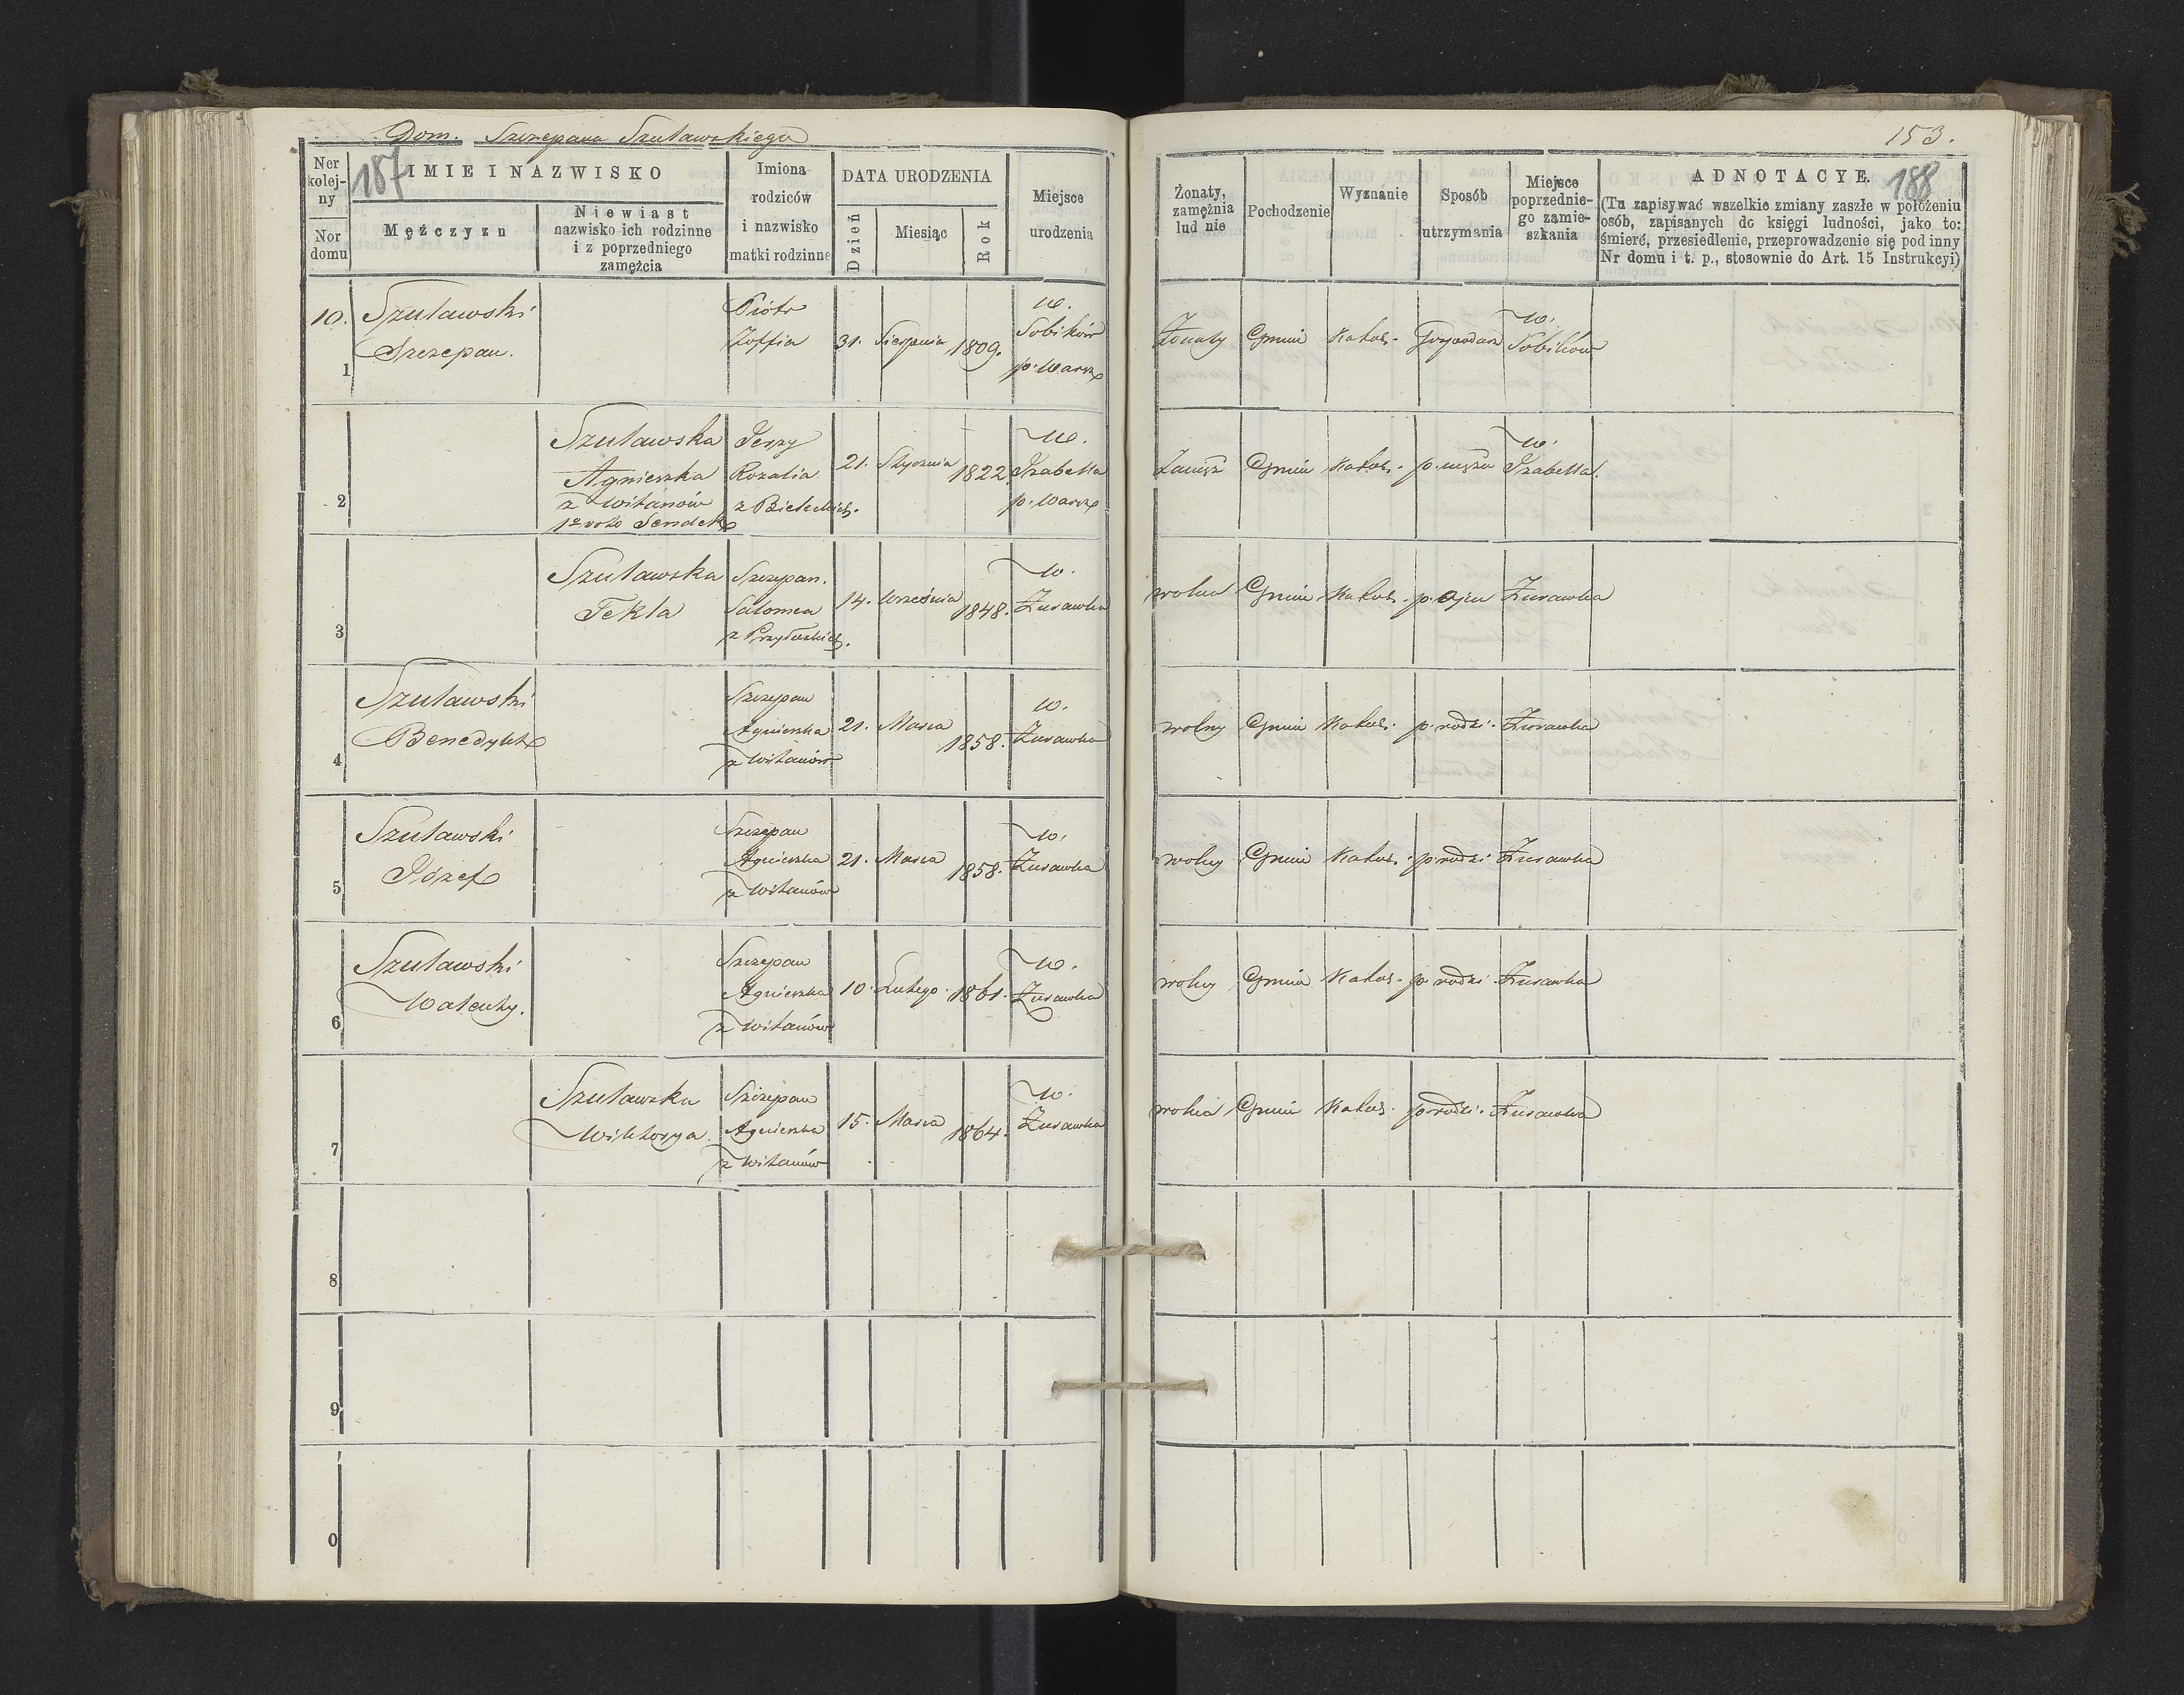 Dom. Szczepana Szuławskiego
187
Ner kolejny
Nor domu
IMIE I NAZWISKO
Mężczyzn
Niewiast
nazwisko ich rodzinne
i z poprzedniego
zamęźcia
Imiona
rodziców
i nazwisko
matki rodzinne
DATA URODZENIA
Dzień
Miesiąc
Rok
Miejsce
urodzenia
10.
1
Szuławski
Szczepan.
Piotr
Zoffia
31. Sierpnia 1809.
w.
Sobików
p. Warsz
2
Szuławska
Agnieszka
z Witanów
1o voto Sendek
Jerzy
Rozalia
z Bieleckich.
21. Stycznia 1822
w.
Izabella
p. Warsz
3
Szuławska
Tekla
Szczepan.
Salomea
14. Września 1848.
w.
Żurawka
4
Szuławski
Benedykt
Szczepan
Agnieszka
z Witanów
21. Marca 1858.
w.
Żurawka
5
Szuławski
Józef
Szczepan
Agnieszka
z Witanów
21. Marca 1858.
w.
Żurawka
6
Szuławski
Walenty.
Szczepan
Agnieszka
z Witanów
10. Lutego. 1861.
w.
Żurawka
7
Szuławska
Wiktorya.
Szczepan
Agnieszka
z Witanów
15. Marca 1864.
w.
Żurawka
8
9
0
153.
188
Żonaty,
zamężnia
lud nie
Pochodzenie
Wyznánie
Sposób
utrzymania
Miejsce
poprzednie-
go zamie-
szkania
ADNOTACYE.
(Tu zapisywać wszelkie zmiany zaszłe w położeniu
osób, zapisanych do księgi ludności, jako to:
śmierć, przesiedlenie, przeprowadzenie się pod inny
Nr domu i t. p., stosownie do Art. 15 Instrukcyi)
Żonaty Gmin Katol. Gospodarz w. Sobików
Zamęż Gmin Katol. p. mężu w. Izabella.
wolna Gmin Katol. p. ojcu Żurawka
wolny Gmin Katol. p. rodzi. Żurawka
wolny Gmin Katol. p. rodzi Żurawka
wolny Gmin Katol. p. rodzi. Żurawka
wolna Gmin Katol. p. rodzi. Żurawka